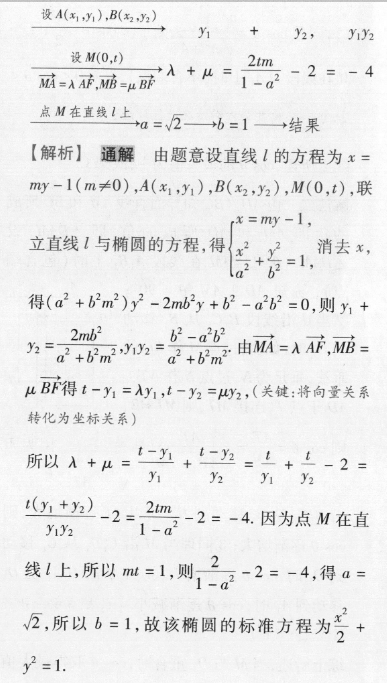 设 A(x₁,y₁),B(x₂,y₂) → y₁ + y₂, y₁y₂
设 M(0,t) / \overrightarrow{MA}=λ\overrightarrow{AF},\overrightarrow{MB}=μ\overrightarrow{BF} → λ + μ = \frac{2tm}{1-a²} - 2 = -4
点 M 在直线 l 上 → a = √2 → b = 1 → 结果
【解析】 通解 由题意设直线 l 的方程为 x =
my - 1(m≠0),A(x₁,y₁),B(x₂,y₂),M(0,t),联
立直线 l 与椭圆的方程,得\begin{cases} x = my - 1, \\ \frac{x²}{a²} + \frac{y²}{b²} = 1, \end{cases} 消去 x,
得(a² + b²m²)y² - 2mb²y + b² - a²b² = 0,则 y₁ +
y₂ = \frac{2mb²}{a² + b²m²},y₁y₂ = \frac{b² - a²b²}{a² + b²m²}. 由\overrightarrow{MA} = λ\overrightarrow{AF},\overrightarrow{MB} =
μ\overrightarrow{BF}得 t - y₁ = λy₁,t - y₂ = μy₂,(关键:将向量关系
转化为坐标关系)
所以 λ + μ = \frac{t - y₁}{y₁} + \frac{t - y₂}{y₂} = \frac{t}{y₁} + \frac{t}{y₂} - 2 =
\frac{t(y₁ + y₂)}{y₁y₂} - 2 = \frac{2tm}{1 - a²} - 2 = -4. 因为点 M 在直
线 l 上,所以 mt = 1,则\frac{2}{1 - a²} - 2 = -4,得 a =
√2,所以 b = 1,故该椭圆的标准方程为\frac{x²}{2} +
y² = 1.